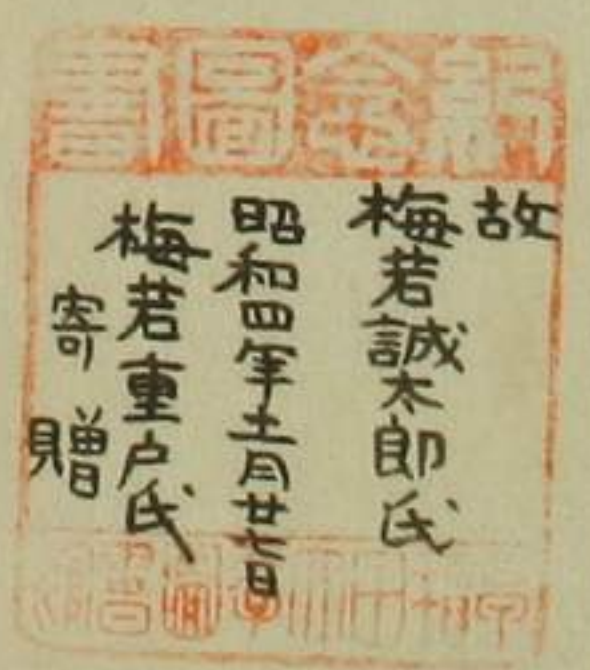 紀念圖書
故
梅若誠太郎氏
昭和四年十一月廿七日
梅若重戸氏
寄贈